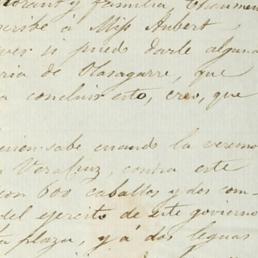 y familia,
scribe á Miss Hubert
ver si puedo darle alguna
ria de Olasagarre, que
concluir esto, creo, que
quien sabe cuando la veremos
Veracruz, contra este
con 600 caballos y dos com
del ejercito de este govierno
plaza, y á dos leguas